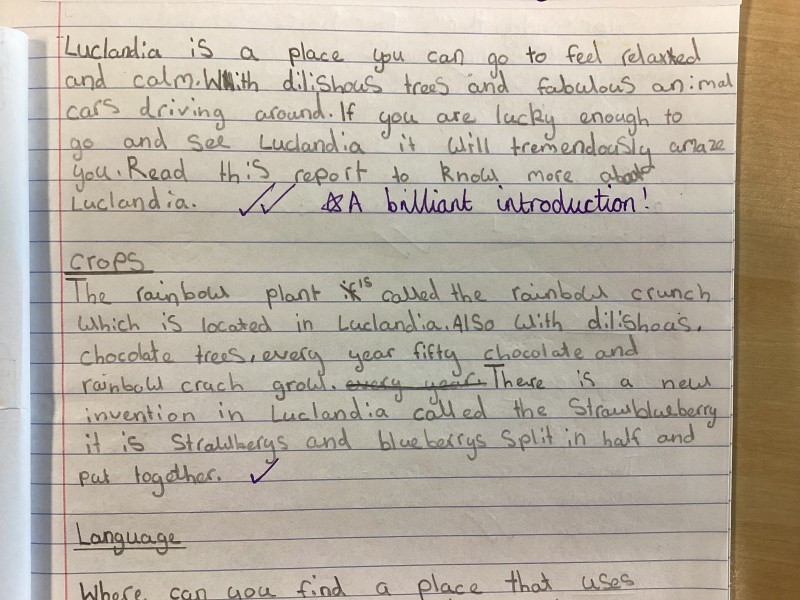 Luclandia is a place you can go to feel relaxted
and calm. With dilishous trees and fabulous animal
cars driving around. If you are lucky enough to
go and see Luclandia it will tremendously amaze
you. Read this report to know more about
Luclandia. ✓✓ ☆A brilliant introduction!
Crops
The rainbow plant is called the rainbow crunch
which is located in Luclandia. Also with dilishous.
chocolate trees, every year fifty chocolate and
rainbow crach grow. every year There is a new
invention in Luclandia called the Strawblueberry
it is Strawberys and blueberrys split in half and
put together. ✓
Language
Where can you find a place that uses